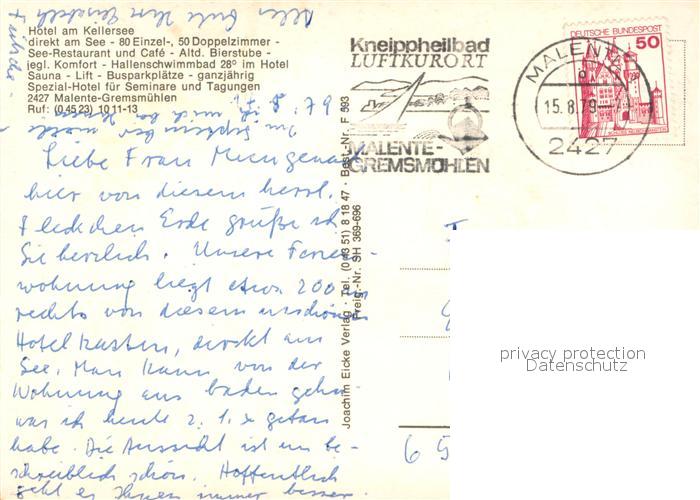 Hotel am Kellersee
direkt am See - 80 Einzel-, 50 Doppelzimmer -
See-Restaurant und Café - Altd. Bierstube -
jegl. Komfort - Hallenschwimmbad 28° im Hotel
Sauna - Lift - Busparkplätze - ganzjährig
Spezial-Hotel für Seminare und Tagungen
2427 Malente-Gremsmühlen
Ruf: (0 45 23) 10 11-13
79
Liebe Frau
hier von diesem herrl.
Fleckchen Erde grüße ich
Sie herzlich. Unsere Ferien-
wohnung liegt etwa 200 m
rechts von diesem
Hotelkasten, direkt am
See. Man kann von der
Wohnung aus baden gehen
was ich heute z. 1. x getan
habe. Die Aussicht ist un be-
schreiblich schön. Hoffentlich
geht es Ihnen immer besser.
Joachim Eicke Verlag · Tel. (0 43 51) 8 18 47 · Best.-Nr. F 993
Freig.-Nr. SH 369-696
Kneippheilbad
LUFTKURORT
MALENTE-
GREMSMÜHLEN
MALENTE
15.8.79
2427
DEUTSCHE BUNDESPOST
50
65
privacy protection
Datenschutz